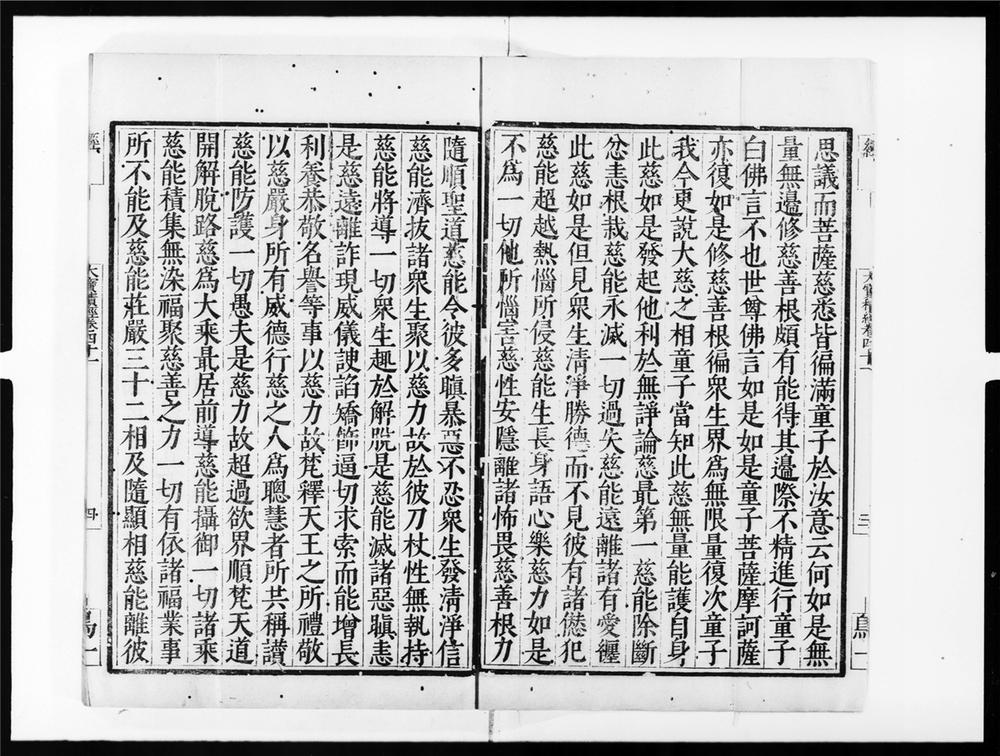 思議而菩薩慈悉皆徧滿童子於汝意云何如是無
量無邉修慈善根頗有能得其邉際不精進行童子
白佛言不也世尊佛言如是如是童子菩薩摩訶薩
亦復如是修慈善根徧衆生界爲無限量復次童子
我今更說大慈之相童子當知此慈無量能護自身
此慈如是發起他利於無諍論慈最第一慈能除斷
忿恚根栽慈能永滅一切過失慈能遠離諸有愛纒
此慈如是但見衆生清淨勝德而不見彼有諸愆犯
慈能超越熱惱所侵慈能生長身語心樂慈力如是
不爲一切他所惱害慈性安隱離諸怖畏慈善根力
隨順聖道慈能令彼多瞋暴惡不忍衆生發清淨信
慈能濟拔諸衆生聚以慈力故於彼刀杖性無執持
慈能將導一切衆生趣於解脫是慈能滅諸惡瞋恚
是慈遠離詐現威儀諛諂矯飾逼切求索而能增長
利養恭敬名譽等事以慈力故梵釋天王之所禮敬
以慈嚴身所有威德行慈之人爲聰慧者所共稱讚
慈能防護一切愚夫是慈力故超過欲界順梵天道
開解脫路慈爲大乘最居前導慈能攝御一切諸乘
慈能積集無染福聚慈善之力一切有依諸福業事
所不能及慈能莊嚴三十二相及隨顯相慈能離彼
大寶積經卷四十一
四